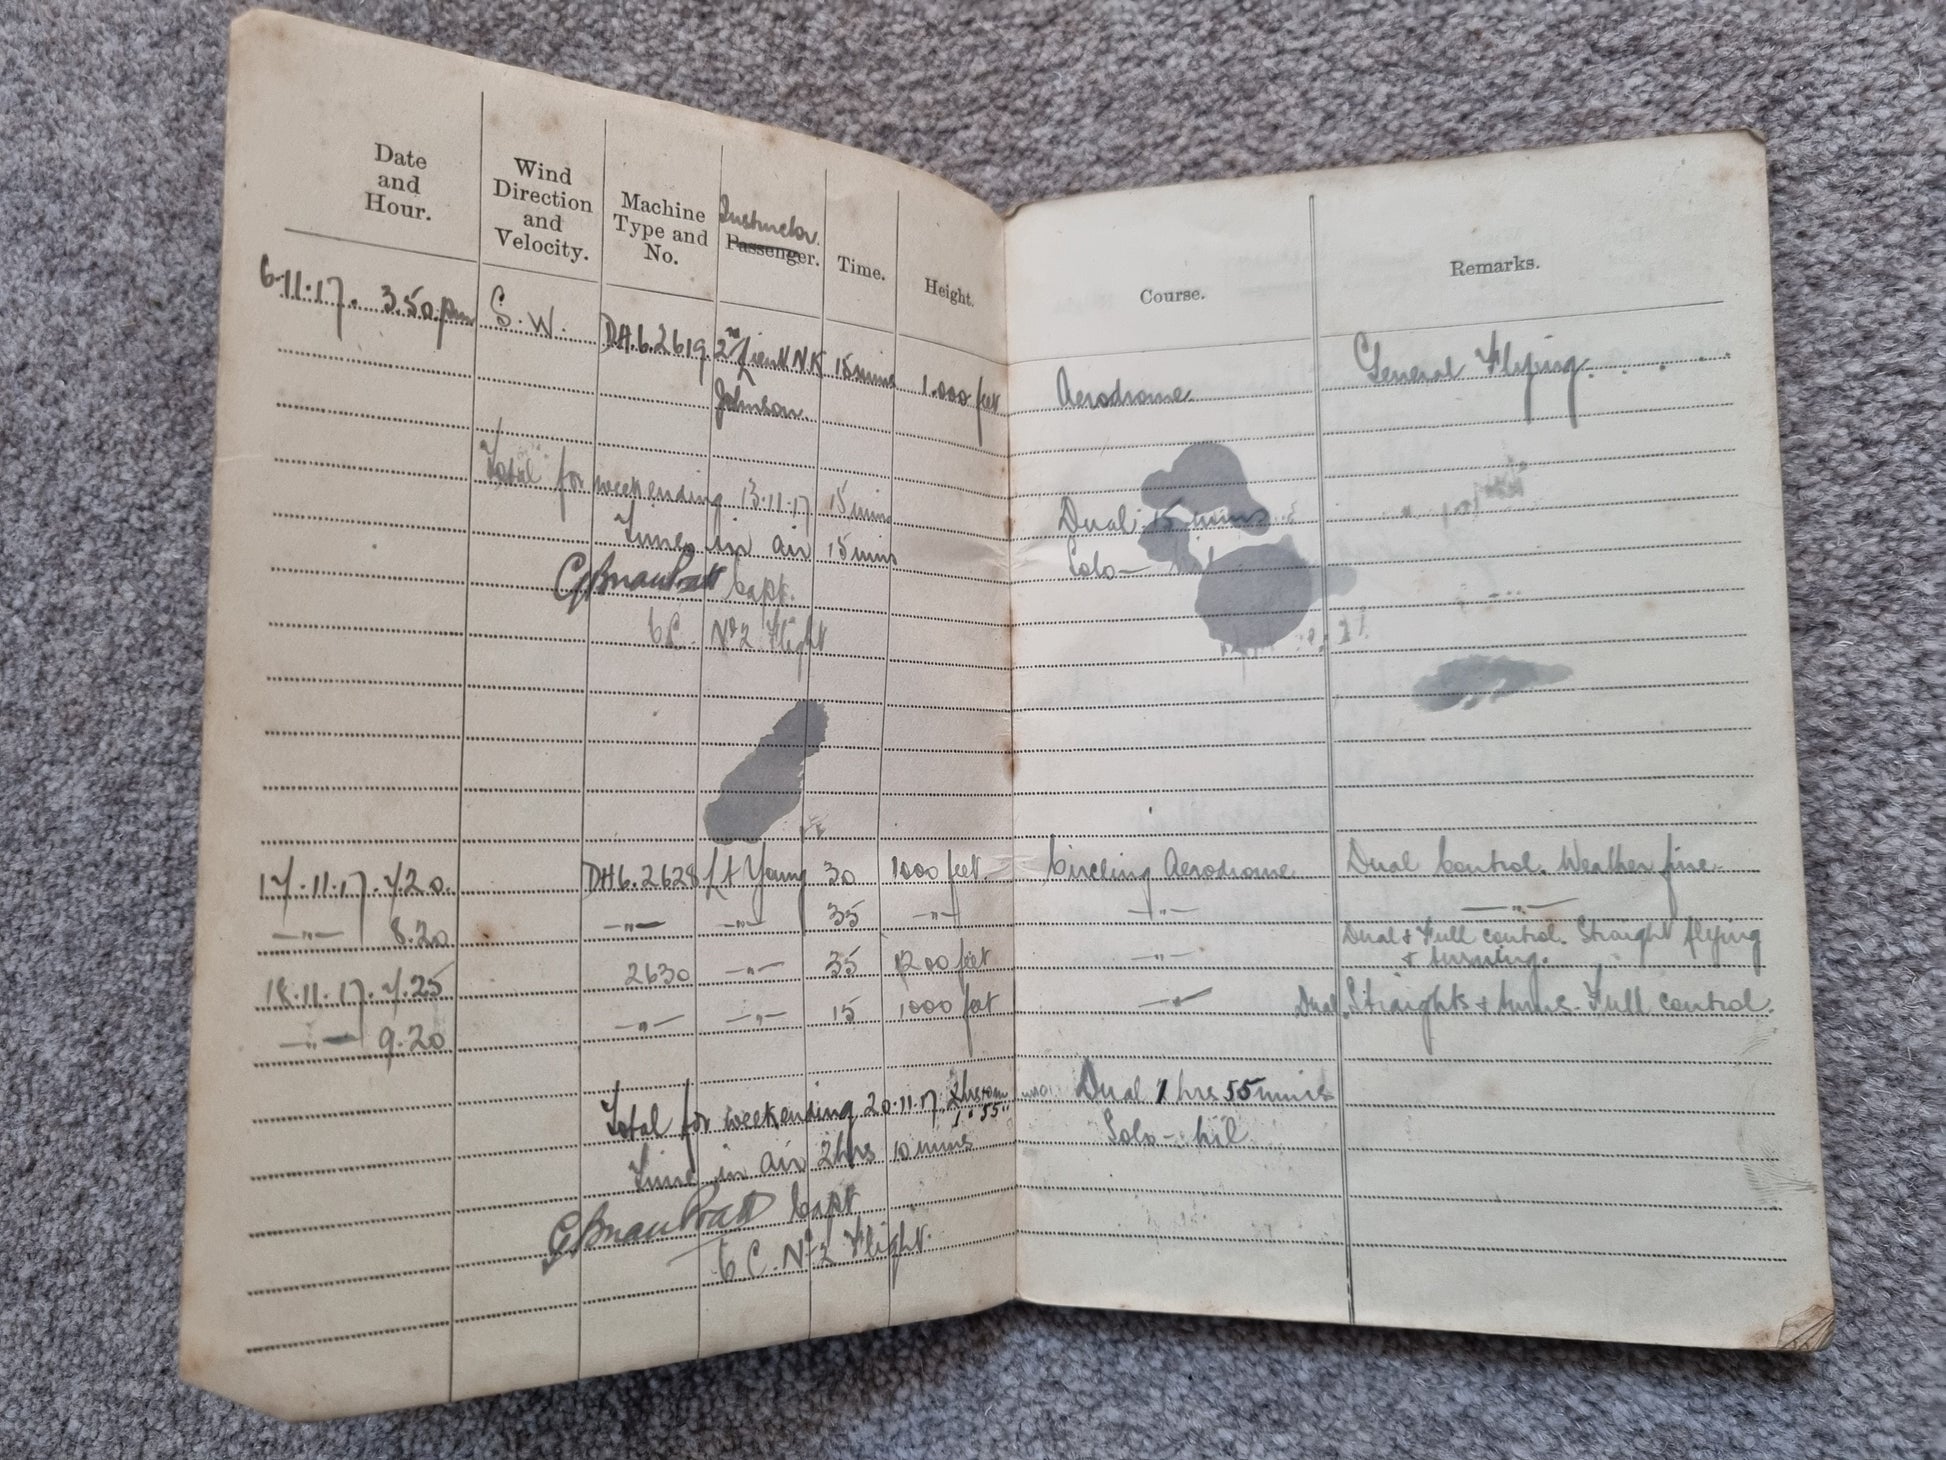 Date
and
Hour.
Wind
Direction
and
Velocity.
Machine
Type and
No.
Instructor
Passenger.
Time.
Height.
6.11.17. 3.50.pm S.W. DH.6.2619 2nd Lieut N.K 15 mins 1.000 feet
Johnson
Total for week ending 13.11.17 15 mins
Time in air 15 mins
Capt.
C.C. No 2 Flight
17.11.17. 7.20. DH6.2628 Lt Young 30 1000 feet.
—"— 8.20 —"— —"— 35 —"—
18.11.17. 7.25 2630 —"— 35 1200 feet
—"— 9.20 —"— —"— 15 1000 feet
Total for week ending 20.11.17. 1 " 55 "
Time in air 2 hrs 10 mins
Capt
C C. No 2 Flight.
Course.
Remarks.
Aerodrome. General Flying.
Dual 15 mins
Solo —
Circling Aerodrome Dual Control. Weather fine.
—"— —"—
—"— Dual & Full control. Straight flying
& turning.
—"— Dual. Straights & turns. Full control.
Dual 1 hrs 55 mins
Solo – nil